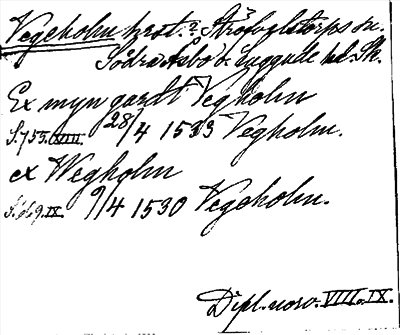 Vegeholm hrst.? Strövelstorps sn.
Södra Åsbo o. Luggude hd. Sk.
Ex myn gardt Vegholm
S. 753. VIII. 28/4 1533 Vegholm.
ex Wegholm
IX. 9/4 1530 Vegeholm.
Dipl. norv. VIII. IX.